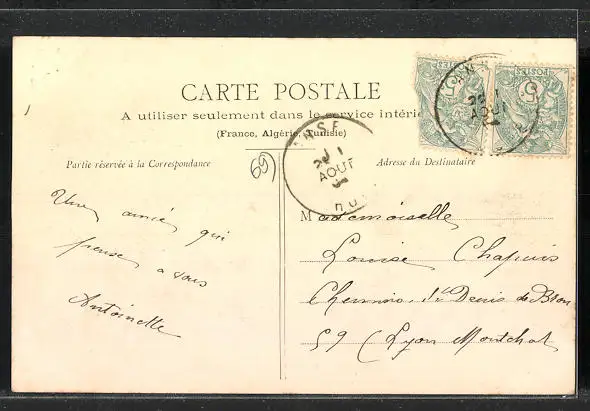 CARTE POSTALE
A utiliser seulement dans le service intérie
(France, Algérie, Tunisie)
Partie réservée à la Correspondance
Adresse du Destinataire
69
ANSE
AOUT
POSTES
5
Une amie qui
pense a vous
Antoinette
Mademoiselle
Louise Chapuis
Chemin St Denis de Bron
59 (Lyon Montchat